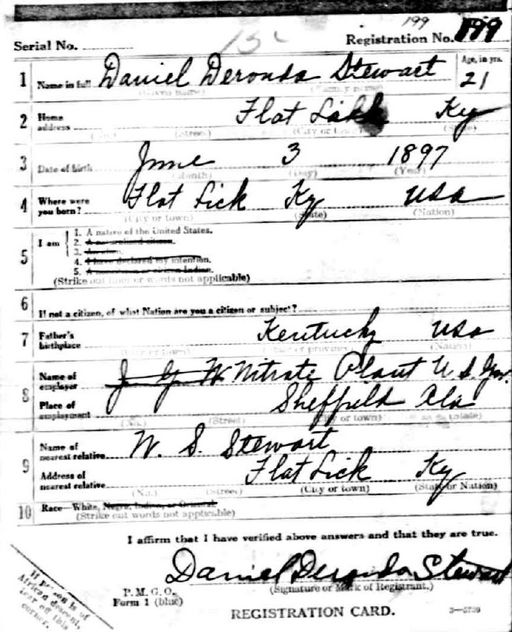 199
Serial No. Registration No. 199
1 Name in full Daniel Deronda Stewart Age, in yrs. 21
(Given name) (Family name)
2 Home address Flat Lick Ky
(No.) (Street) (City or town) (State)
3 Date of birth June 3 1897
(Month) (Day) (Year)
4 Where were you born? Flat Lick Ky USA
(City or town) (State) (Nation)
5 I am
1. A native of the United States.
2. A naturalized citizen.
3. An alien.
4. I have declared my intention.
5. A noncitizen or citizen Indian.
(Strike out lines or words not applicable)
6 If not a citizen, of what Nation are you a citizen or subject?
7 Father's birthplace Kentucky USA
8 Name of employer J. G. W Nitrate Plant U S Gov.
Place of employment Sheffield Ala
(No.) (Street) (City or town) (State)
9 Name of nearest relative W. S. Stewart
Address of nearest relative Flat Lick Ky
(No.) (Street) (City or town) (State or Nation)
10 Race—White, Negro, Indian, or Oriental
(Strike out words not applicable)
I affirm that I have verified above answers and that they are true.
Daniel Deronda Stewart
(Signature or Mark of Registrant.)
P. M. G. O.
Form 1 (blue)
REGISTRATION CARD.
If person is of
African descent,
tear off this
corner.